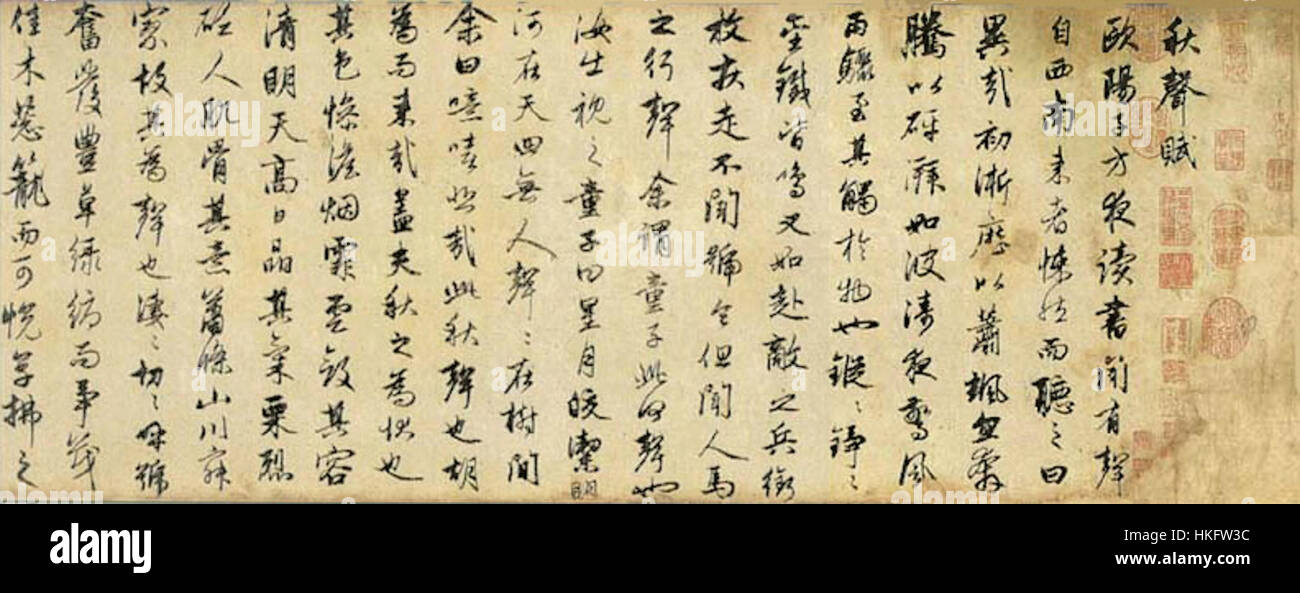 秋聲賦
歐陽子方夜读書聞有聲
自西南来者悚然而聽之曰
異哉初淅瀝以蕭颯忽奔
騰以砰湃如波濤夜驚風
雨驟至其觸於物也鏦〻錚〻
金鐵皆鳴又如赴敵之兵銜
枚疾走不聞號令但聞人馬
之行聲余謂童子此何聲也
汝出視之童子曰星月皎潔明
河在天四無人聲〻在樹間
余曰噫嘻悲哉此秋聲也胡
為而来哉盖夫秋之為状也
其色惨澹烟霏雲斂其容
清明天高日晶其氣栗烈
砭人肌骨其意蕭條山川寂
寥故其為聲也凄〻切〻呼號
奮發豐草緑縟而爭茂
佳木葱籠而可悦草拂之
alamy
Image ID: HKFW3C
www.alamy.com